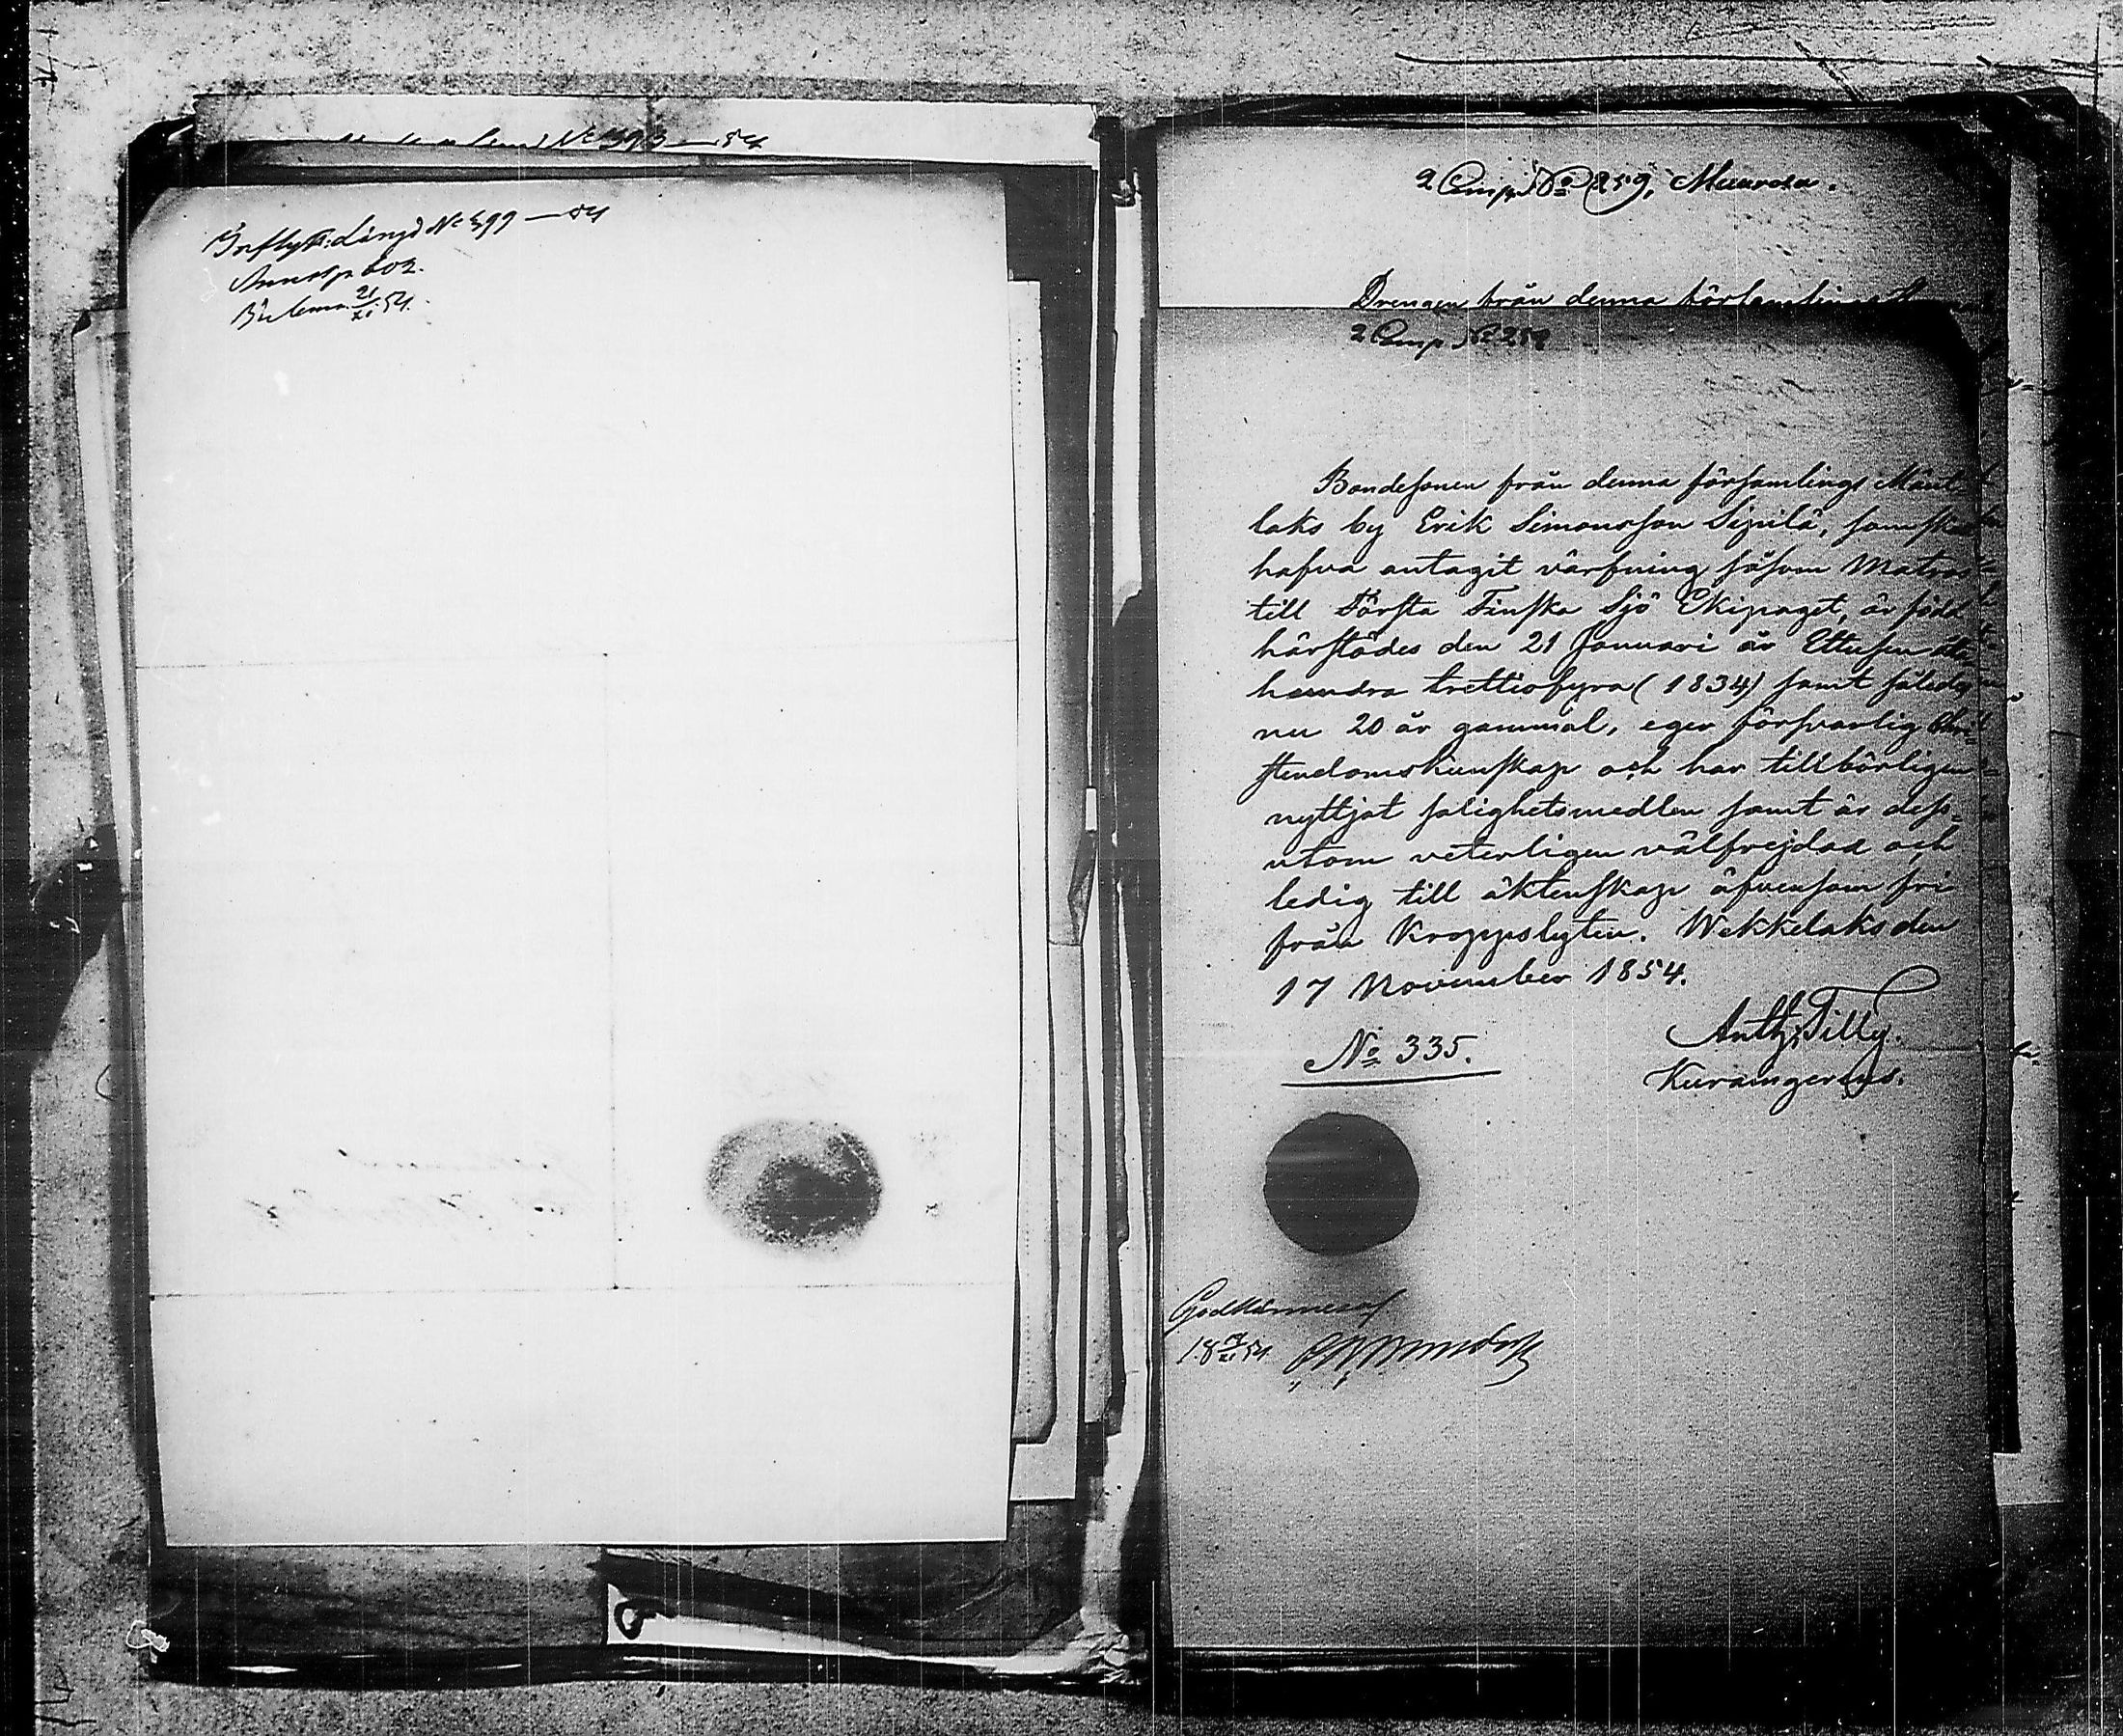 Inflytt: Längd № 399 — 54
2 Comp № 259, Muurola.
Drengen från denna församlings
2 Comp № 259
Bondesonen från denna församlings Mänt-
laks by Erik Simonsson Sipilä, som skall
hafva antagit värfning såsom Matros
till Första Finska Sjö Ekipaget, är född
härstädes den 21 Januari år Ettusen åtta
hundra trettiofyra (1834) samt således
nu 20 år gammal, eger försvarlig Chri-
stendomskunskap och har tillbörligen
nyttjat salighetsmedlen samt är dess-
utom veterligen välfrejdad och
ledig till äktenskap äfvensom fri
från Kroppslyten. Wekkelaks den
17 November 1854.
Anth. Tilly.
№ 335.
Godkännes af